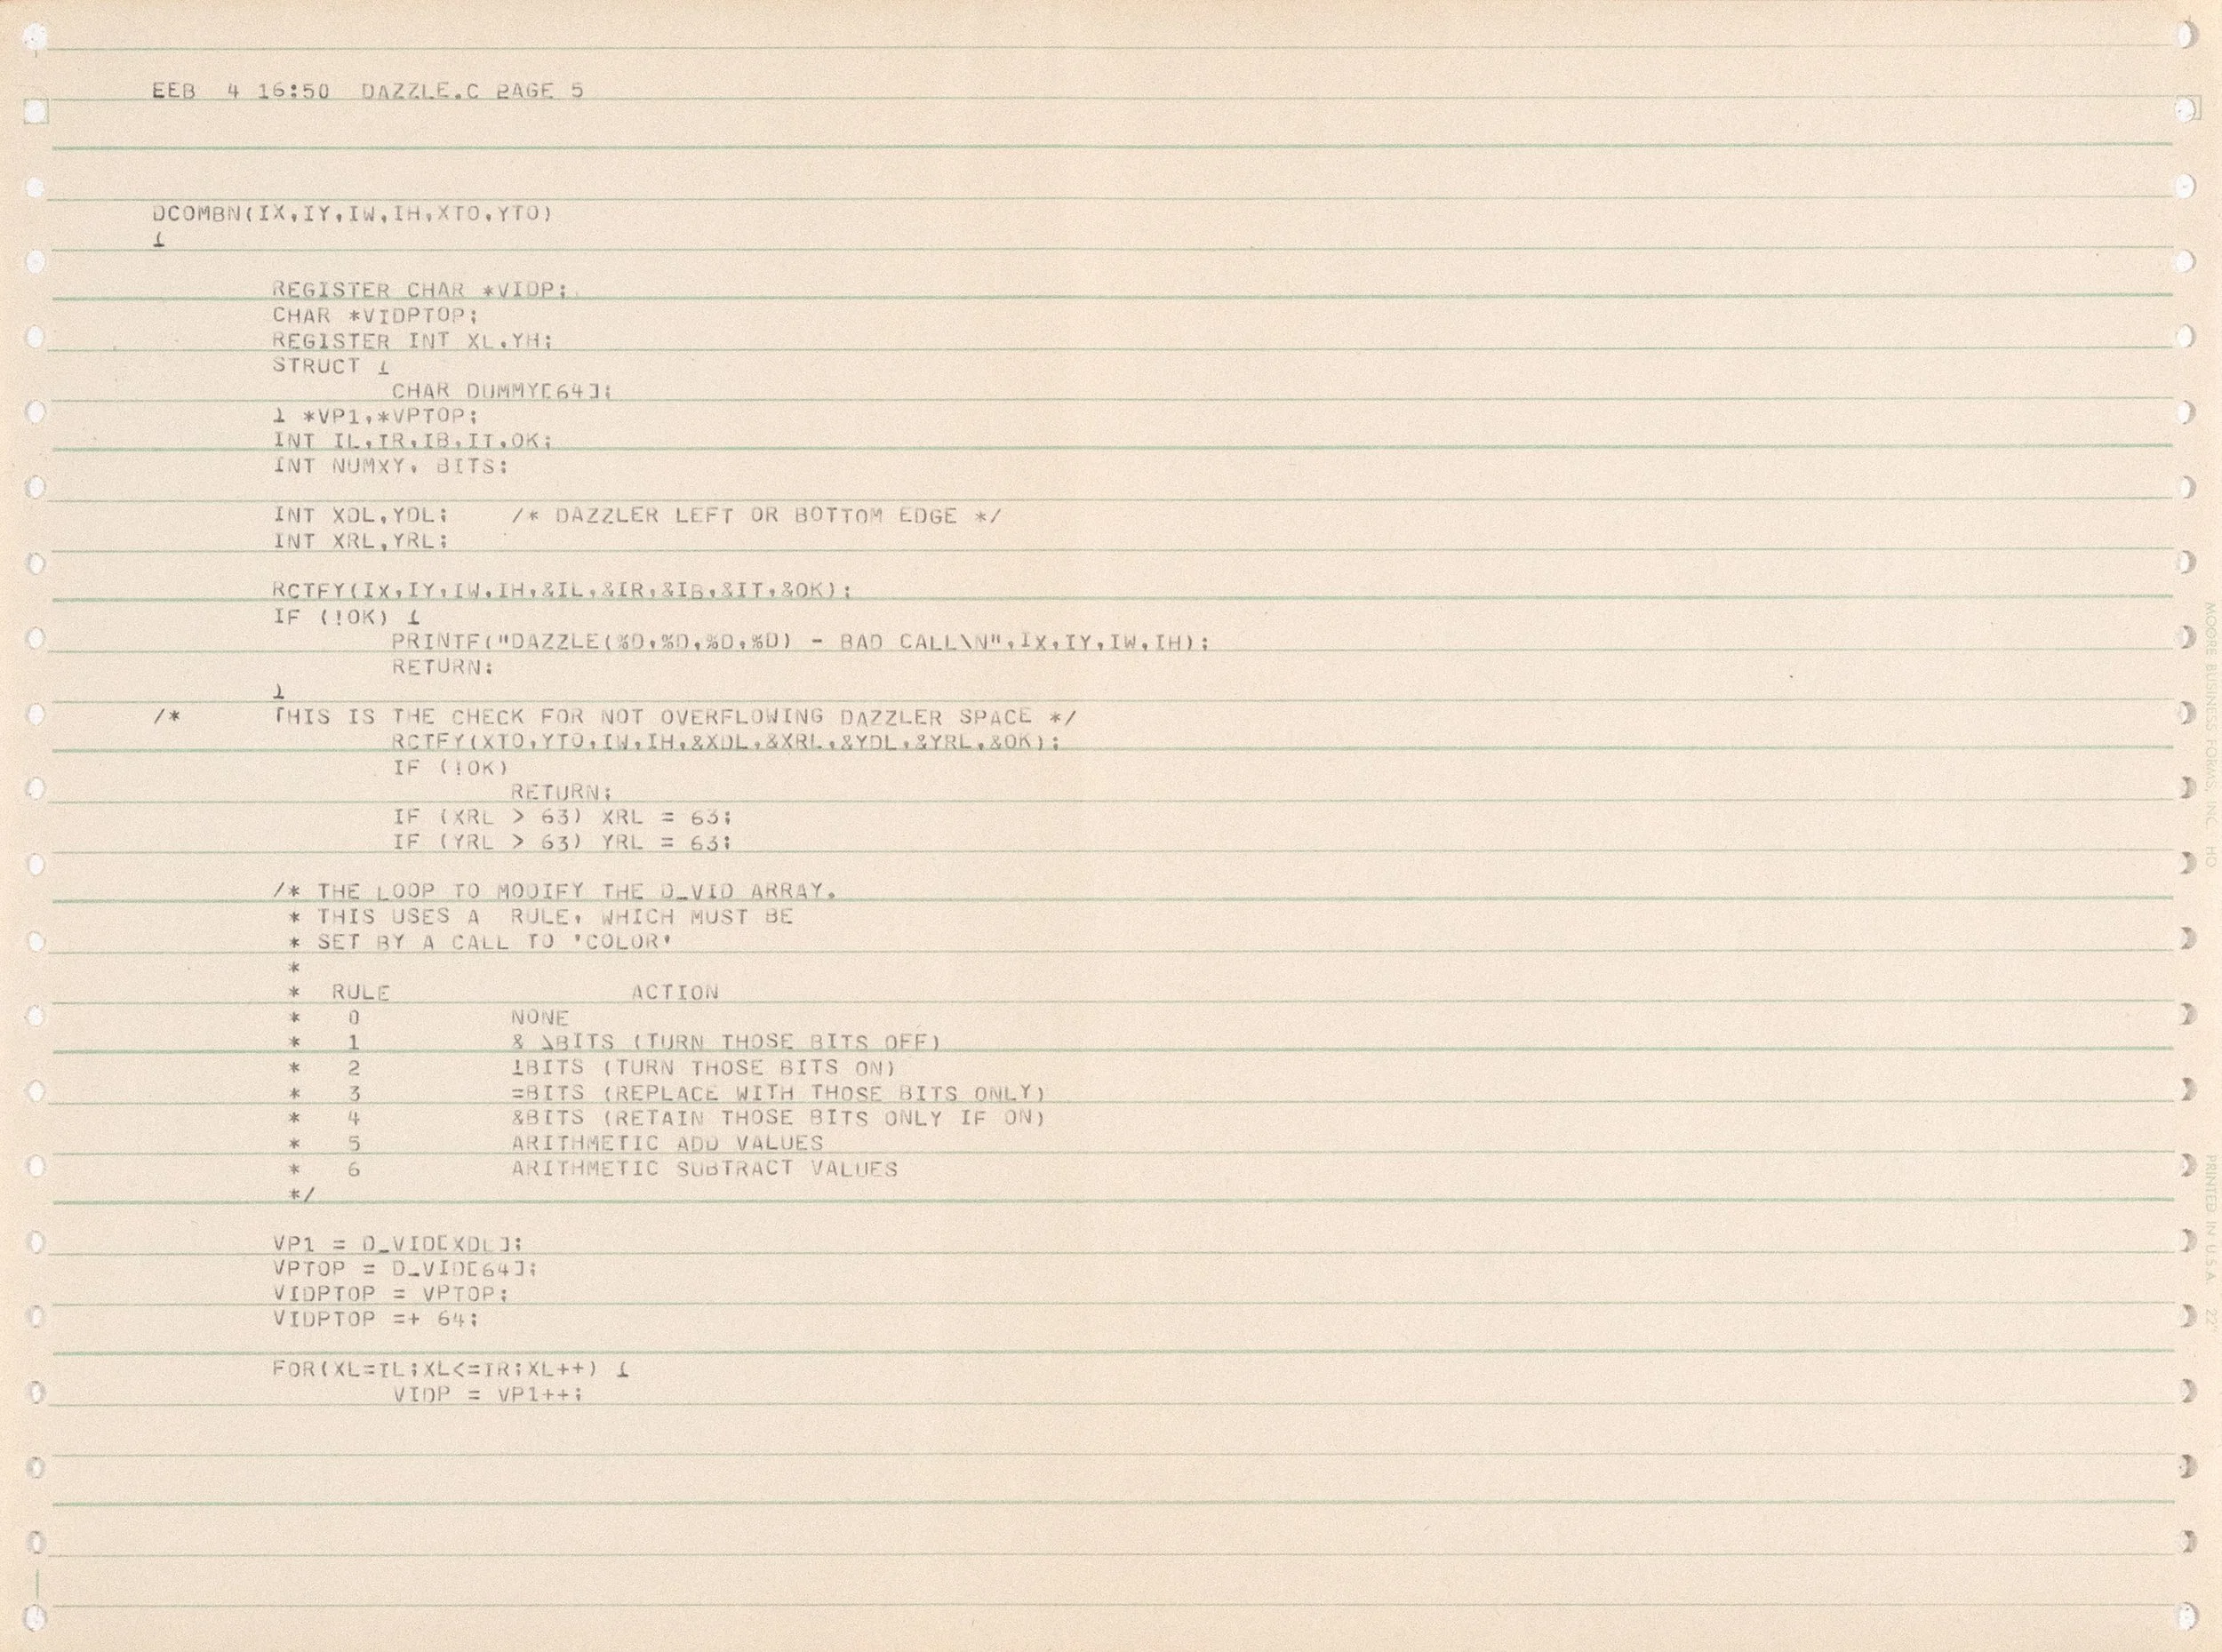 FEB  4 16:50  DAZZLE.C PAGE 5
DCOMBN(IX,IY,IW,IH,XTO,YTO)
{
REGISTER CHAR *VIDP;
CHAR *VIDPTOP;
REGISTER INT XL,YH;
STRUCT {
CHAR DUMMY[64];
} *VP1,*VPTOP;
INT IL,IR,IB,IT,OK;
INT NUMXY, BITS;
INT XDL,YDL;    /* DAZZLER LEFT OR BOTTOM EDGE */
INT XRL,YRL;
RCTFY(IX,IY,IW,IH,&IL,&IR,&IB,&IT,&OK);
IF (!OK) {
PRINTF("DAZZLE(%D,%D,%D,%D) - BAD CALL\N",IX,IY,IW,IH);
RETURN;
}
/*      THIS IS THE CHECK FOR NOT OVERFLOWING DAZZLER SPACE */
RCTFY(XTO,YTO,IW,IH,&XDL,&XRL,&YDL,&YRL,&OK);
IF (!OK)
RETURN;
IF (XRL > 63) XRL = 63;
IF (YRL > 63) YRL = 63;
/* THE LOOP TO MODIFY THE D_VID ARRAY.
* THIS USES A  RULE, WHICH MUST BE
* SET BY A CALL TO 'COLOR'
*
*  RULE                ACTION
*   0          NONE
*   1          & \BITS (TURN THOSE BITS OFF)
*   2          |BITS (TURN THOSE BITS ON)
*   3          =BITS (REPLACE WITH THOSE BITS ONLY)
*   4          &BITS (RETAIN THOSE BITS ONLY IF ON)
*   5          ARITHMETIC ADD VALUES
*   6          ARITHMETIC SUBTRACT VALUES
*/
VP1 = D_VID[XDL];
VPTOP = D_VID[64];
VIDPTOP = VPTOP;
VIDPTOP =+ 64;
FOR(XL=IL;XL<=IR;XL++) {
VIDP = VP1++;
MOORE BUSINESS FORMS, INC. HQ
PRINTED IN U.S.A. 22"